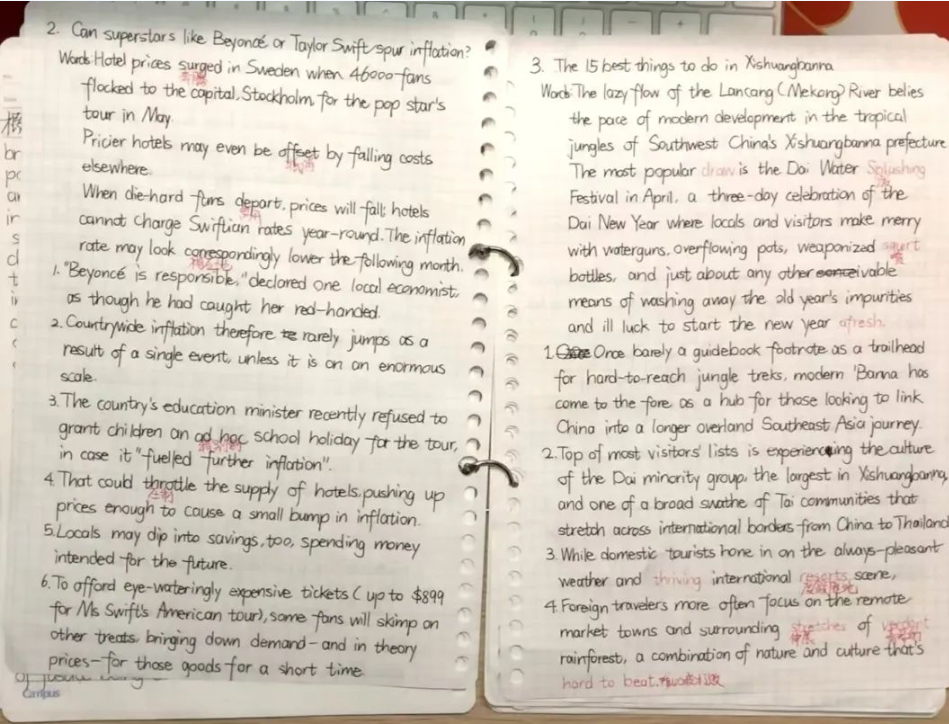 2. Can superstars like Beyoncé or Taylor Swift spur inflation?
Words: Hotel prices surged in Sweden when 46000 fans
flocked to the capital, Stockholm, for the pop star's
tour in May.
Pricier hotels may even be offset by falling costs
抵消
elsewhere.
When die-hard fans depart, prices will fall; hotels
cannot charge Swiftian rates year-round. The inflation
rate may look correspondingly lower the following month.
相应地
1. "Beyoncé is responsible," declared one local economist,
as though he had caught her red-handed.
2. Countrywide inflation therefore rarely jumps as a
result of a single event, unless it is on an enormous
scale.
3. The country's education minister recently refused to
grant children an ad hoc school holiday for the tour,
in case it "fuelled further inflation".
4. That could throttle the supply of hotels, pushing up
prices enough to cause a small bump in inflation.
5. Locals may dip into savings, too, spending money
intended for the future.
6. To afford eye-wateringly expensive tickets (up to $899
for Ms Swift's American tour), some fans will skimp on
other treats, bringing down demand—and in theory
prices—for those goods for a short time.
Campus
3. The 15 best things to do in Xishuangbanna
Words: The lazy flow of the Lancang (Mekong) River belies
the pace of modern development in the tropical
jungles of Southwest China's Xishuangbanna prefecture
The most popular draw is the Dai Water Splashing
Festival in April, a three-day celebration of the
Dai New Year where locals and visitors make merry
with waterguns, overflowing pots, weaponized squirt
喷
bottles, and just about any other conceivable
means of washing away the old year's impurities
and ill luck to start the new year afresh.
1. Once barely a guidebook footnote as a trailhead
for hard-to-reach jungle treks, modern 'Banna has
come to the fore as a hub for those looking to link
China into a longer overland Southeast Asia journey.
2. Top of most visitors' lists is experiencing the culture
of the Dai minority group, the largest in Xishuangbanna,
and one of a broad swathe of Tai communities that
stretch across international borders from China to Thailand
3. While domestic tourists hone in on the always-pleasant
weather and thriving international resorts scene,
度假胜地
4. Foreign travelers more often focus on the remote
market towns and surrounding stretches of verdant
rainforest, a combination of nature and culture that's
hard to beat.